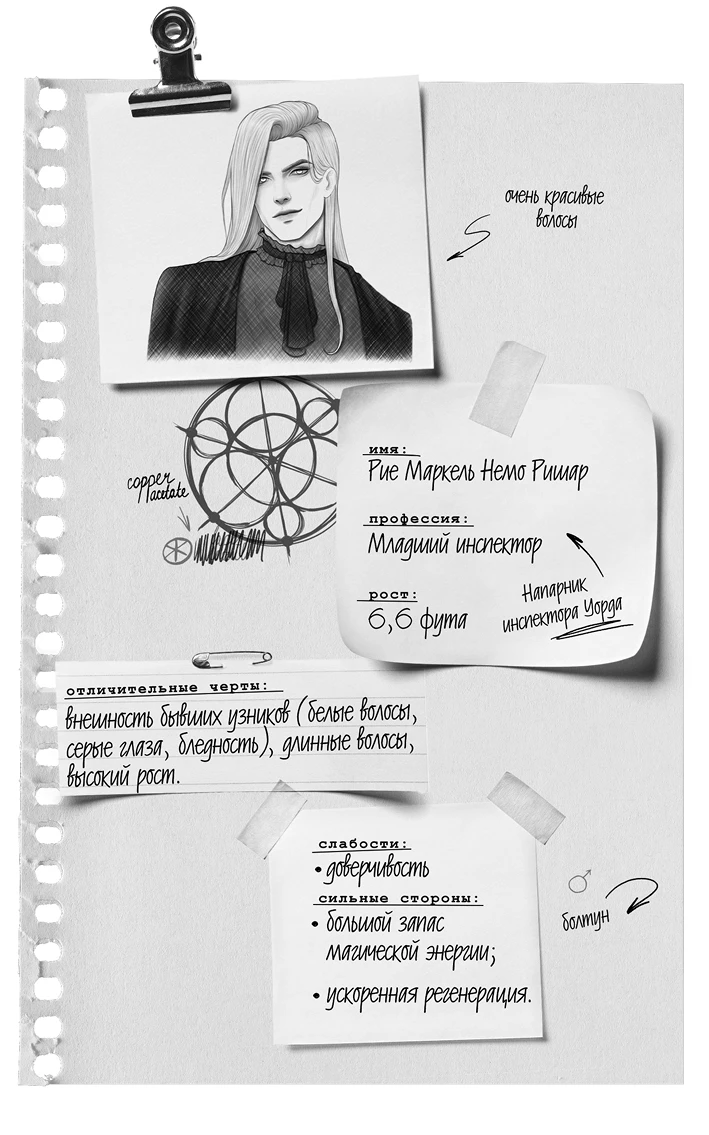 очень красивые
волосы
copper
acetate
имя:
Рие Маркель Немо Ришар
профессия:
Младший инспектор
Напарник
инспектора Уорда
рост:
6,6 фута
отличительные черты:
внешность бывших узников (белые волосы,
серые глаза, бледность), длинные волосы,
высокий рост.
слабости:
• доверчивость
сильные стороны:
• большой запас
магической энергии;
• ускоренная регенерация.
♂
болтун